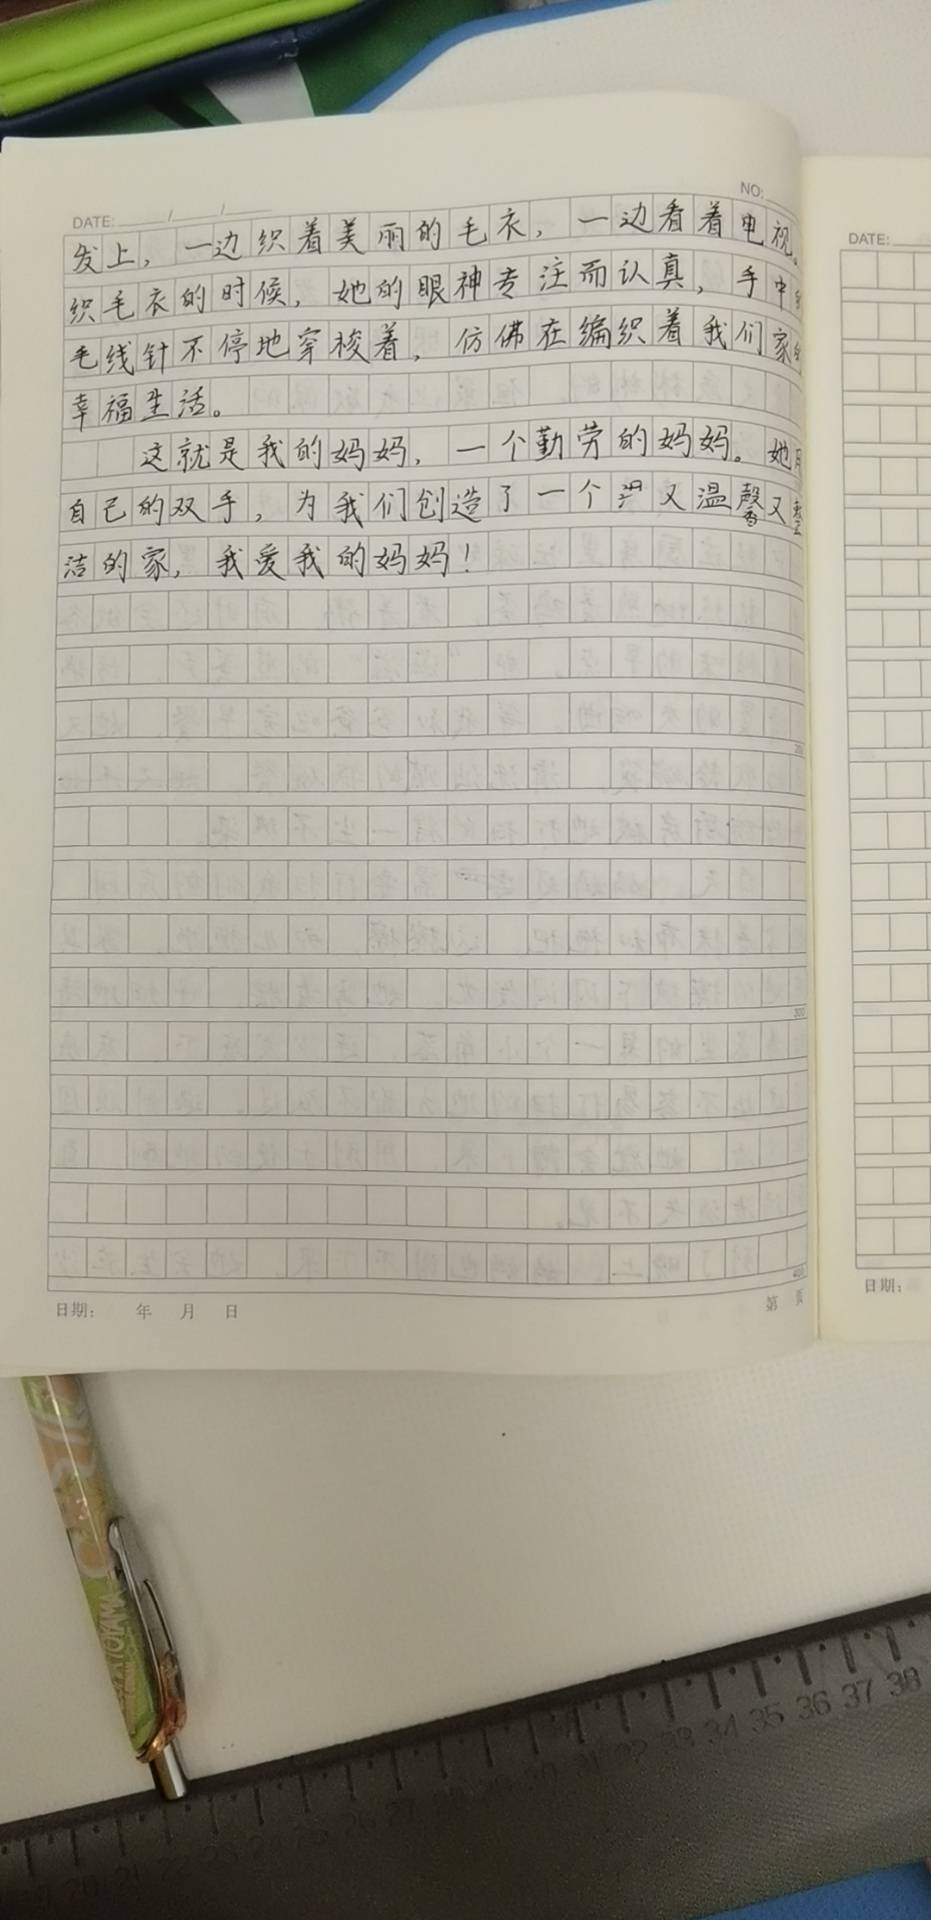 DATE: / /
NO:
发上，一边织着美丽的毛衣，一边看着电视。
织毛衣的时候，她的眼神专注而认真，手中
毛线针不停地穿梭着，仿佛在编织着我们家的
幸福生活。
这就是我的妈妈，一个勤劳的妈妈。她用
自己的双手，为我们创造了一个又温馨又整
洁的家，我爱我的妈妈！
200
300
400
日期： 年 月 日
第 页
DATE:
日期：
20 21 22 23 24 25 26 27 28 29 30 31 32 33 34 35 36 37 38